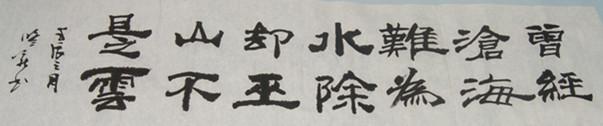 曾經
滄海
難為
水除
却巫
山不
是雲
壬辰三月